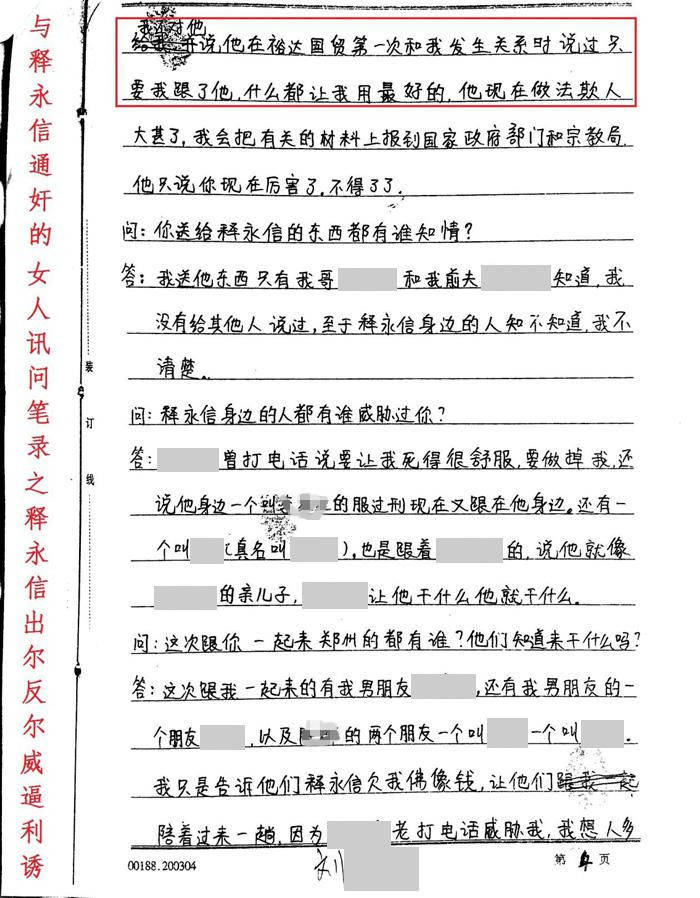 与释永信通奸的女人讯问笔录之释永信出尔反尔威逼利诱
我还对他
并说他在裕达国贸第一次和我发生关系时说过只
要我跟了他,什么都让我用最好的,他现在做法欺人
大甚了,我会把有关的材料上报到国家政府部门和宗教局.
他只说你现在厉害了.不得了了.
问:你送给释永信的东西都有谁知情?
答:我送他东西只有我哥 和我前夫 知道,我
没有给其他人说过,至于释永信身边的人知不知道,我不
清楚。
问:释永信身边的人都有谁威胁过你?
答: 曾打电话说要让我死得很舒服,要做掉我,还
说他身边一个 的服过刑现在又跟在他身边。还有一
个叫 (真名叫 ).也是跟着 的,说他就像
的亲儿子, 让他干什么他就干什么.
问:这次跟你一起来郑州的都有谁?他们知道来干什么吗?
答:这次跟我一起来的有我男朋友 ,还有我男朋友的一
个朋友 ,以及 的两个朋友一个叫 一个叫 .
我只是告诉他们释永信欠我佛像钱,让他们
陪着过来一趟,因为 老打电话威胁我,我想人多
装
订
线
00188.200304
第 4 页
刘